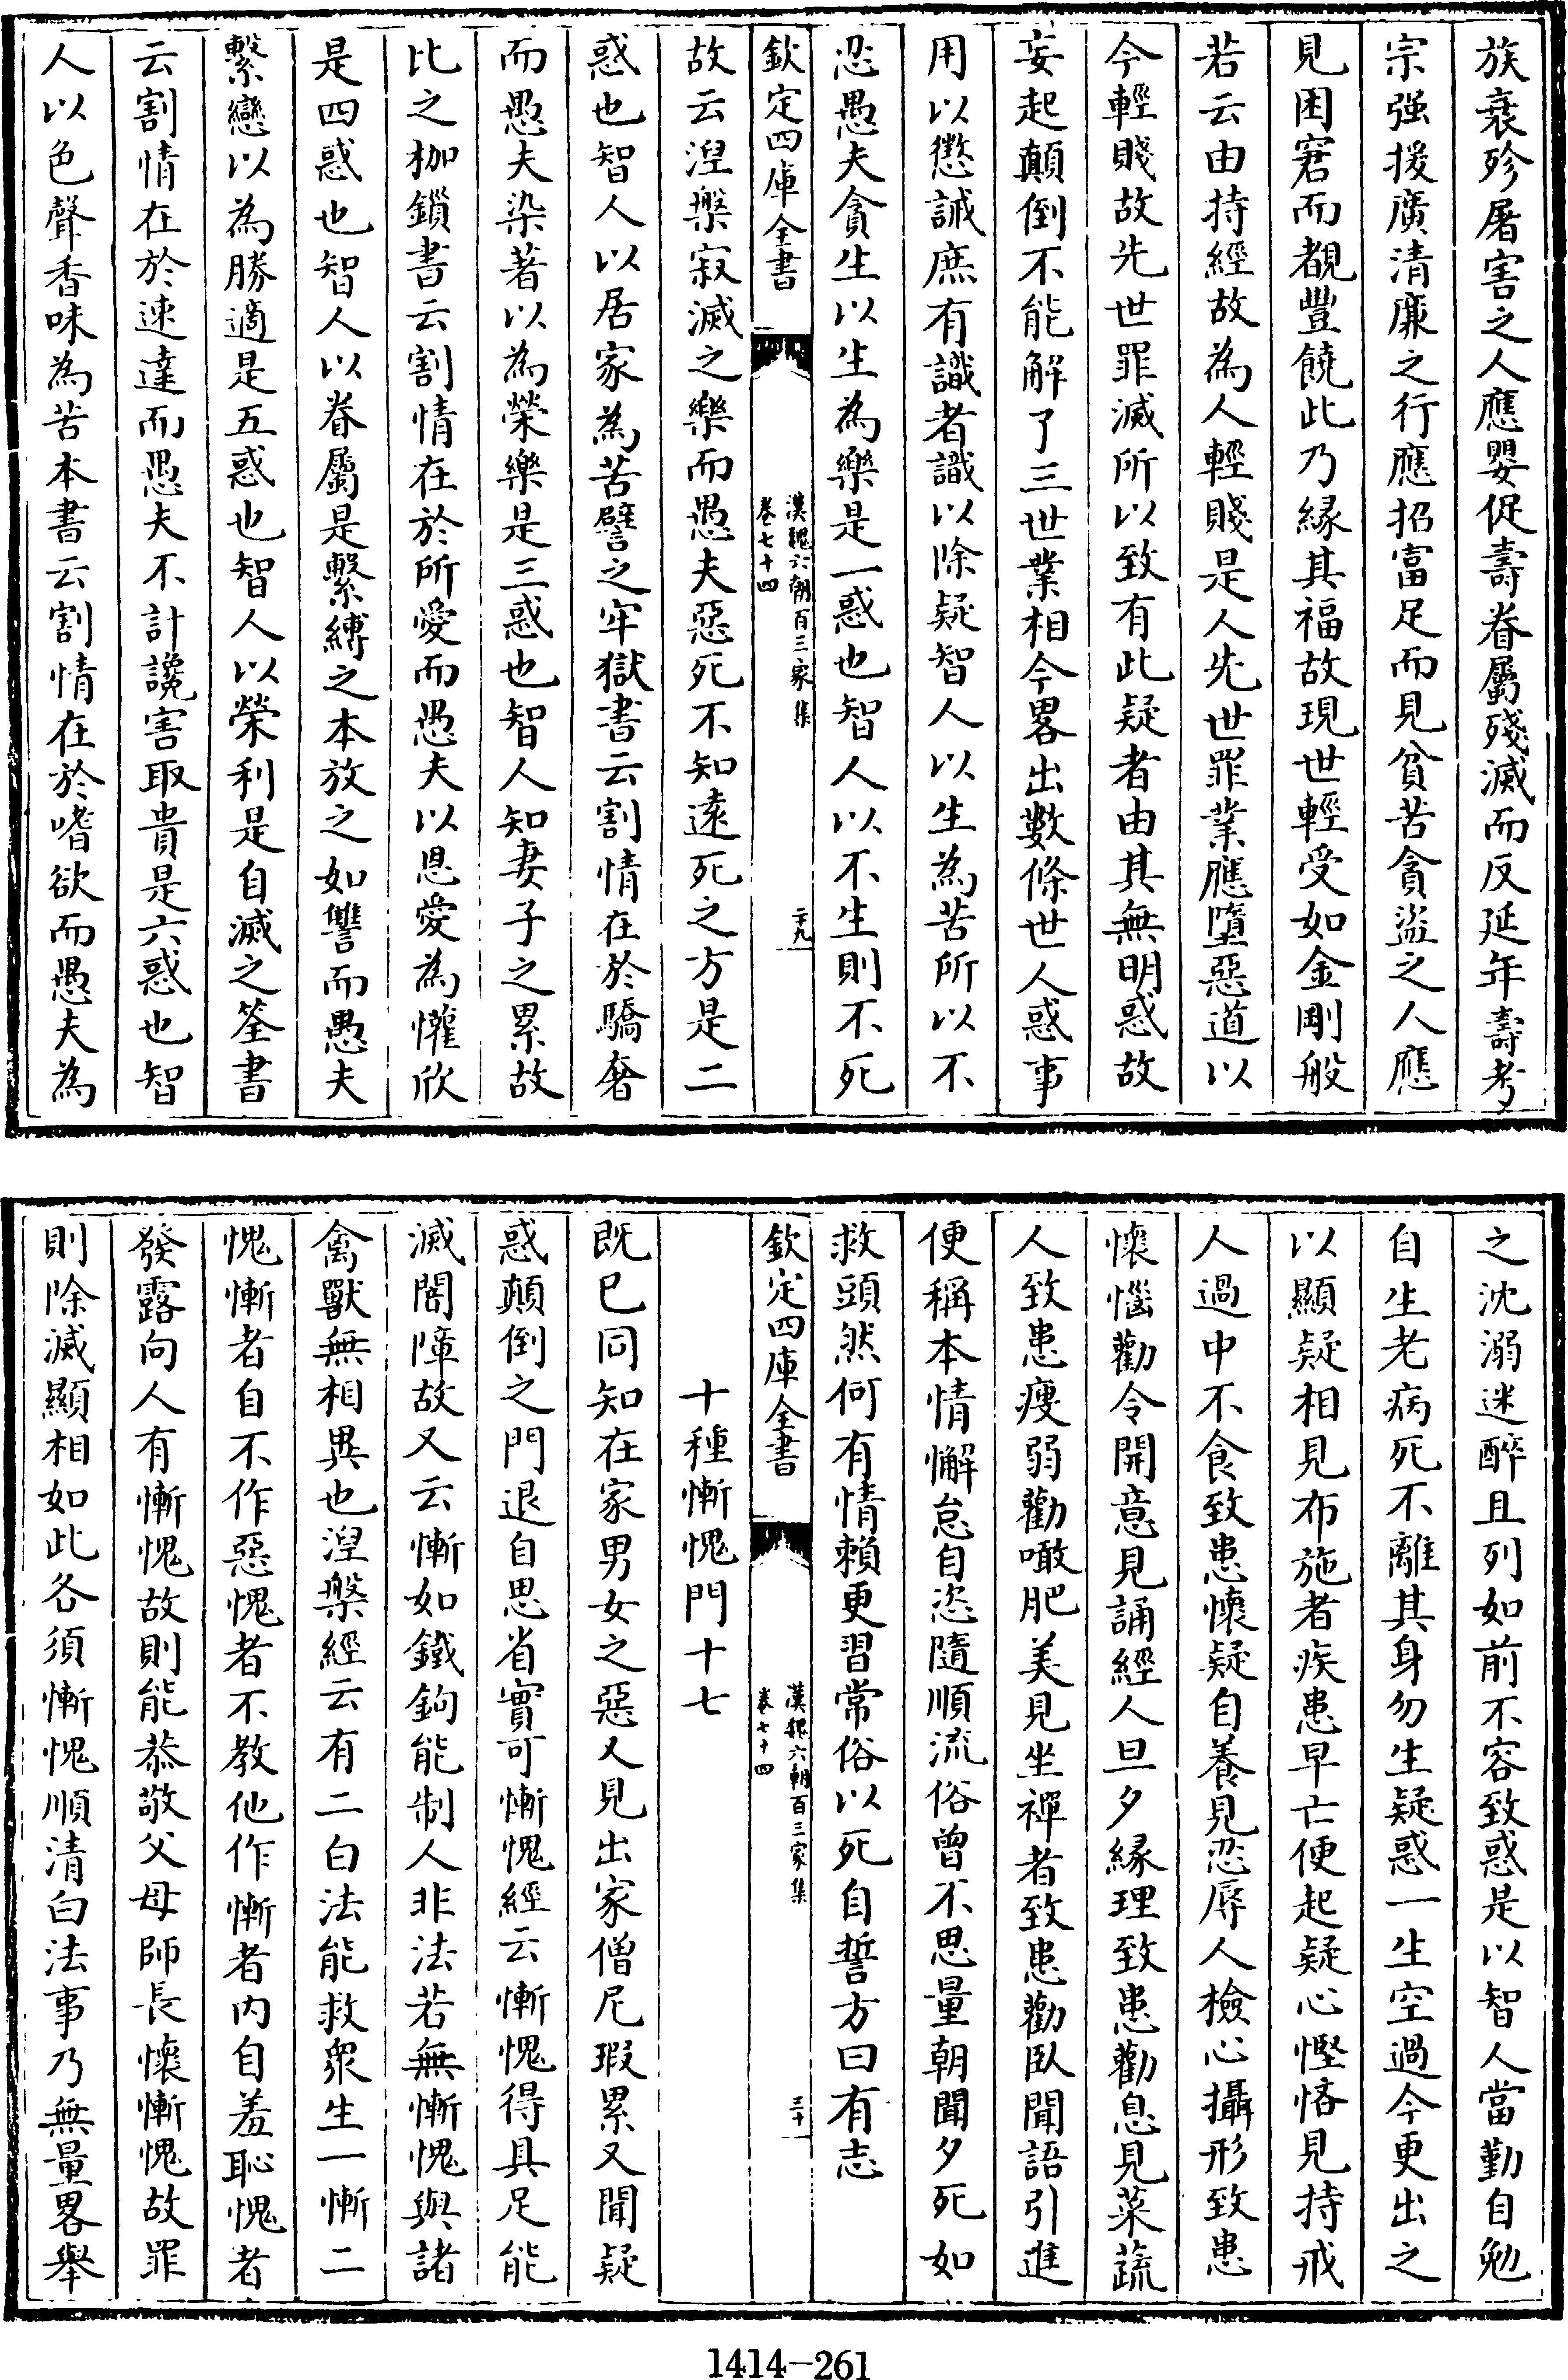 族衰殄屠害之人應嬰促壽眷屬殘滅而反延年壽考
宗强援廣清廉之行應招富足而見貧苦貪盜之人應
見困窘而覩豐饒此乃緣其福故現世輕受如金剛般
若云由持經故為人輕賤是人先世罪業應墮惡道以
今輕賤故先世罪滅所以致有此疑者由其無明惑故
妄起顛倒不能解了三世業相今畧出數條世人惑事
用以懲誡庶有識者識以除疑智人以生為苦所以不
忍愚夫貪生以生為樂是一惑也智人以不生則不死
欽定四庫全書
漢魏六朝百三家集
卷七十四
二十九
故云涅槃寂滅之樂而愚夫惡死不知遠死之方是二
惑也智人以居家為苦譬之牢獄書云割情在於驕奢
而愚夫染著以為榮樂是三惑也智人知妻子之累故
比之枷鎖書云割情在於所愛而愚夫以恩愛為懽欣
是四惑也智人以眷屬是繫縛之本放之如讐而愚夫
繫戀以為勝適是五惑也智人以榮利是自滅之筌書
云割情在於速達而愚夫不計讒害取貴是六惑也智
人以色聲香味為苦本書云割情在於嗜欲而愚夫為
之沈溺迷醉且列如前不容致惑是以智人當勤自勉
自生老病死不離其身勿生疑惑一生空過今更出之
以顯疑相見布施者疾患早亡便起疑心慳悋見持戒
人過中不食致患懷疑自養見忍辱人檢心攝形致患
懷惱勸令開意見誦經人旦夕緣理致患勸息見菜蔬
人致患瘦弱勸噉肥美見坐禪者致患勸臥聞語引進
便稱本情懈怠自恣隨順流俗曾不思量朝聞夕死如
救頭然何有情賴更習常俗以死自誓方曰有志
欽定四庫全書
漢魏六朝百三家集
卷七十四
三十
十種慚愧門十七
既已同知在家男女之惡又見出家僧尼瑕累又聞疑
惑顛倒之門退自思省實可慚愧經云慚愧得具足能
滅闇障故又云慚如鐵鉤能制人非法若無慚愧與諸
禽獸無相異也涅槃經云有二白法能救衆生一慚二
愧慚者自不作惡愧者不教他作慚者內自羞恥愧者
發露向人有慚愧故則能恭敬父母師長懷慚愧故罪
則除滅顯相如此各須慚愧順清白法事乃無量畧舉
1414-261